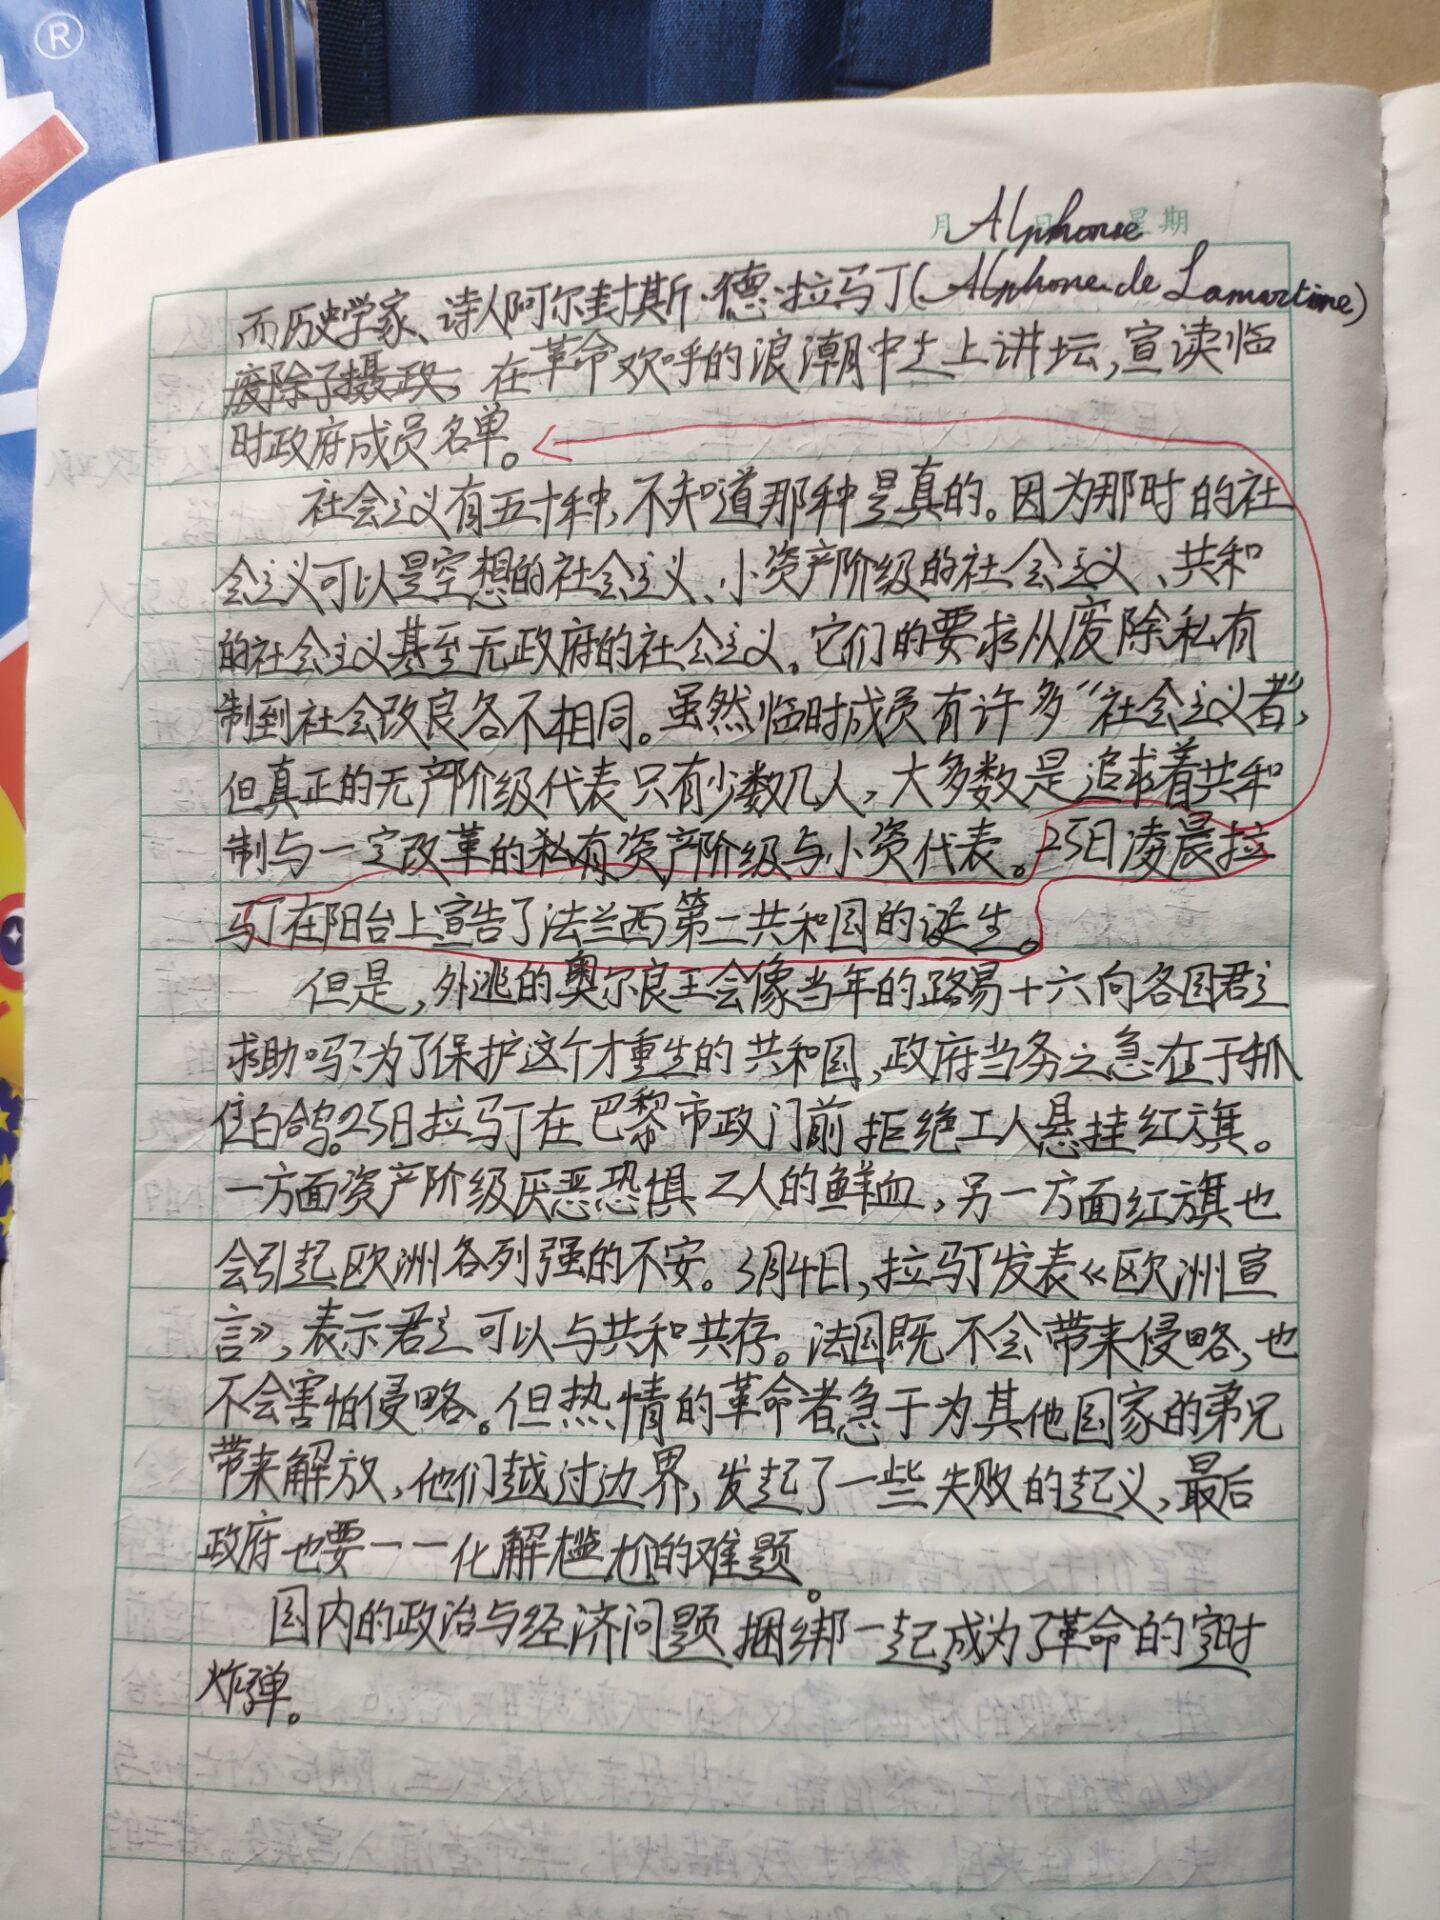 ®
月 日 星期
Alphonse
而历史学家、诗人阿尔封斯·德·拉马丁(Alphonse de Lamartine)
废除了摄政，在革命欢呼的浪潮中走上讲坛，宣读临
时政府成员名单。
社会主义有五十种，不知道那种是真的。因为那时的社
会主义可以是空想的社会主义、小资产阶级的社会主义、共和
的社会主义甚至无政府的社会主义。它们的要求从废除私有
制到社会改良各不相同。虽然临时成员有许多“社会主义者”，
但真正的无产阶级代表只有少数几人，大多数是追求着共和
制与一定改革的私有资产阶级与小资代表。25日凌晨拉
马丁在阳台上宣告了法兰西第二共和国的诞生。
但是，外逃的奥尔良王会像当年的路易十六向各国君主
求助吗？为了保护这个才重生的共和国，政府当务之急在于抓
住白鸽。25日拉马丁在巴黎市政门前拒绝工人悬挂红旗。
一方面资产阶级厌恶恐惧工人的鲜血，另一方面红旗也
会引起欧洲各列强的不安。3月4日，拉马丁发表《欧洲宣
言》，表示君主可以与共和共存。法国既不会带来侵略，也
不会害怕侵略。但热情的革命者急于为其他国家的弟兄
带来解放，他们越过边界，发起了一些失败的起义，最后
政府也要一一化解尴尬的难题。
国内的政治与经济问题捆绑一起，成为了革命的定时
炸弹。